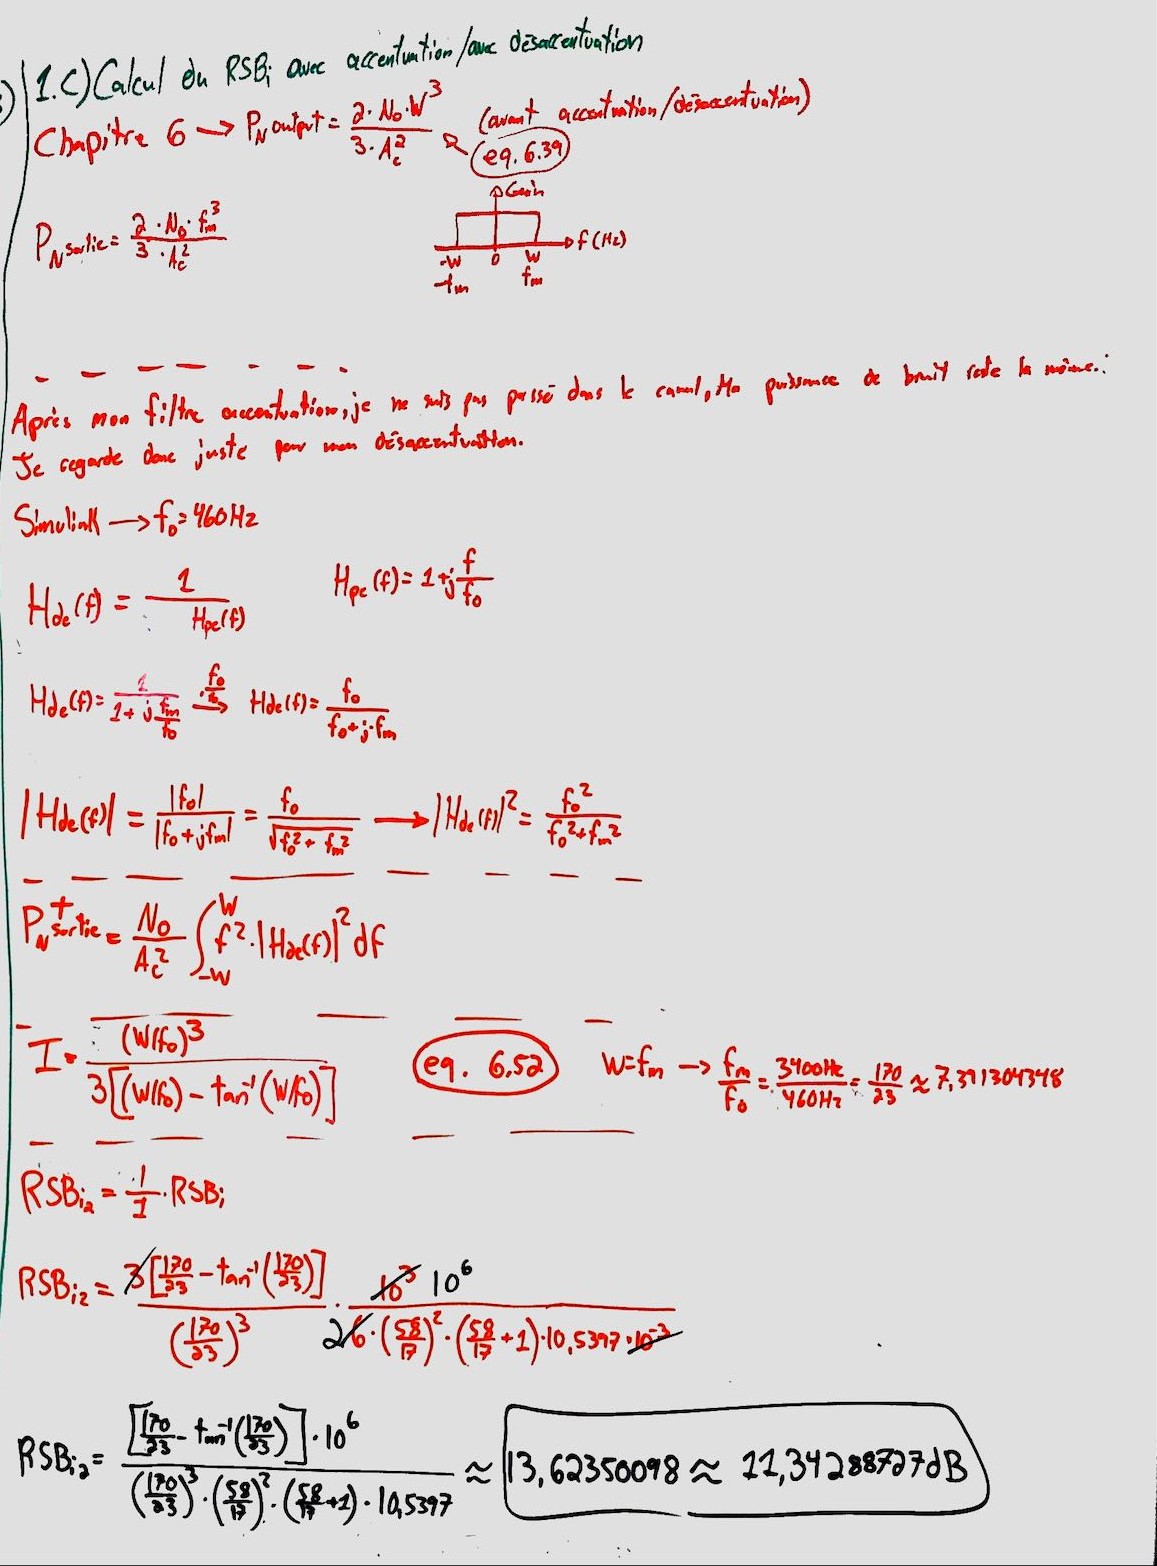 1.C) Calcul du RSBi avec accentuation/avec désaccentuation
Chapitre 6 → PN output = 2·No·W³ / 3·Ac² (avant accentuation/désaccentuation)
eq. 6.39
PN sortie = 2·No·fm³ / 3·Ac²
Gain
f(Hz)
-W 0 W
-fm fm
Après mon filtre accentuation, je ne suis pas passé dans le canal, ma puissance de bruit reste la même.
Je regarde donc juste pour mon désaccentuation.
Simulink → fo = 460Hz
Hde(f) = 1 / Hpe(f) Hpe(f) = 1+j f/fo
Hde(f) = 1 / (1+j fm/fo) ·fo/fo → Hde(f) = fo / (fo+j·fm)
|Hde(f)| = |fo| / |fo+jfm| = fo / √(fo²+fm²) → |Hde(f)|² = fo² / (fo²+fm²)
PN⁺ sortie = No/Ac² ∫_-W^W f²·|Hde(f)|² df
I = (W/fo)³ / 3[(W/fo) - tan⁻¹(W/fo)] eq. 6.52 W=fm → fm/fo = 3400Hz/460Hz = 170/23 ≈ 7,391304348
RSBi2 = 1/I · RSBi
RSBi2 = 3[170/23 - tan⁻¹(170/23)] / (170/23)³ · 10³ 10⁶ / 2 6·(58/17)²·(58/17+1)·10,5397·10⁻³
RSBi2 = [170/23 - tan⁻¹(170/23)]·10⁶ / (170/23)³·(58/17)²·(58/17+1)·10,5397 ≈ 13,62350098 ≈ 11,34288727dB